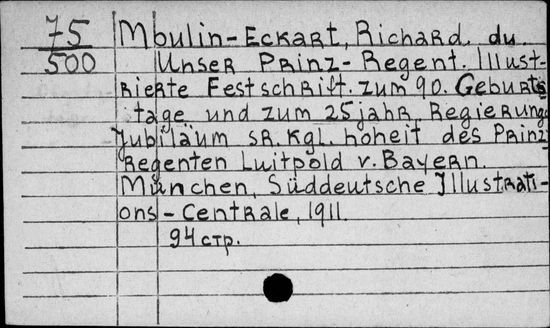 75
500
Moulin-Eckart, Richard du
Unser Prinz-Regent. Illust-
rierte Festschrift. zum 90. Geburts
tage und zum 25jahr. Regierungs
Jubiläum sr. Kgl. hoheit des Prinz
Regenten Luitpold v. Bayern.
München, Süddeutsche Illustrati-
ons-Centrale, 1911.
94 стр.